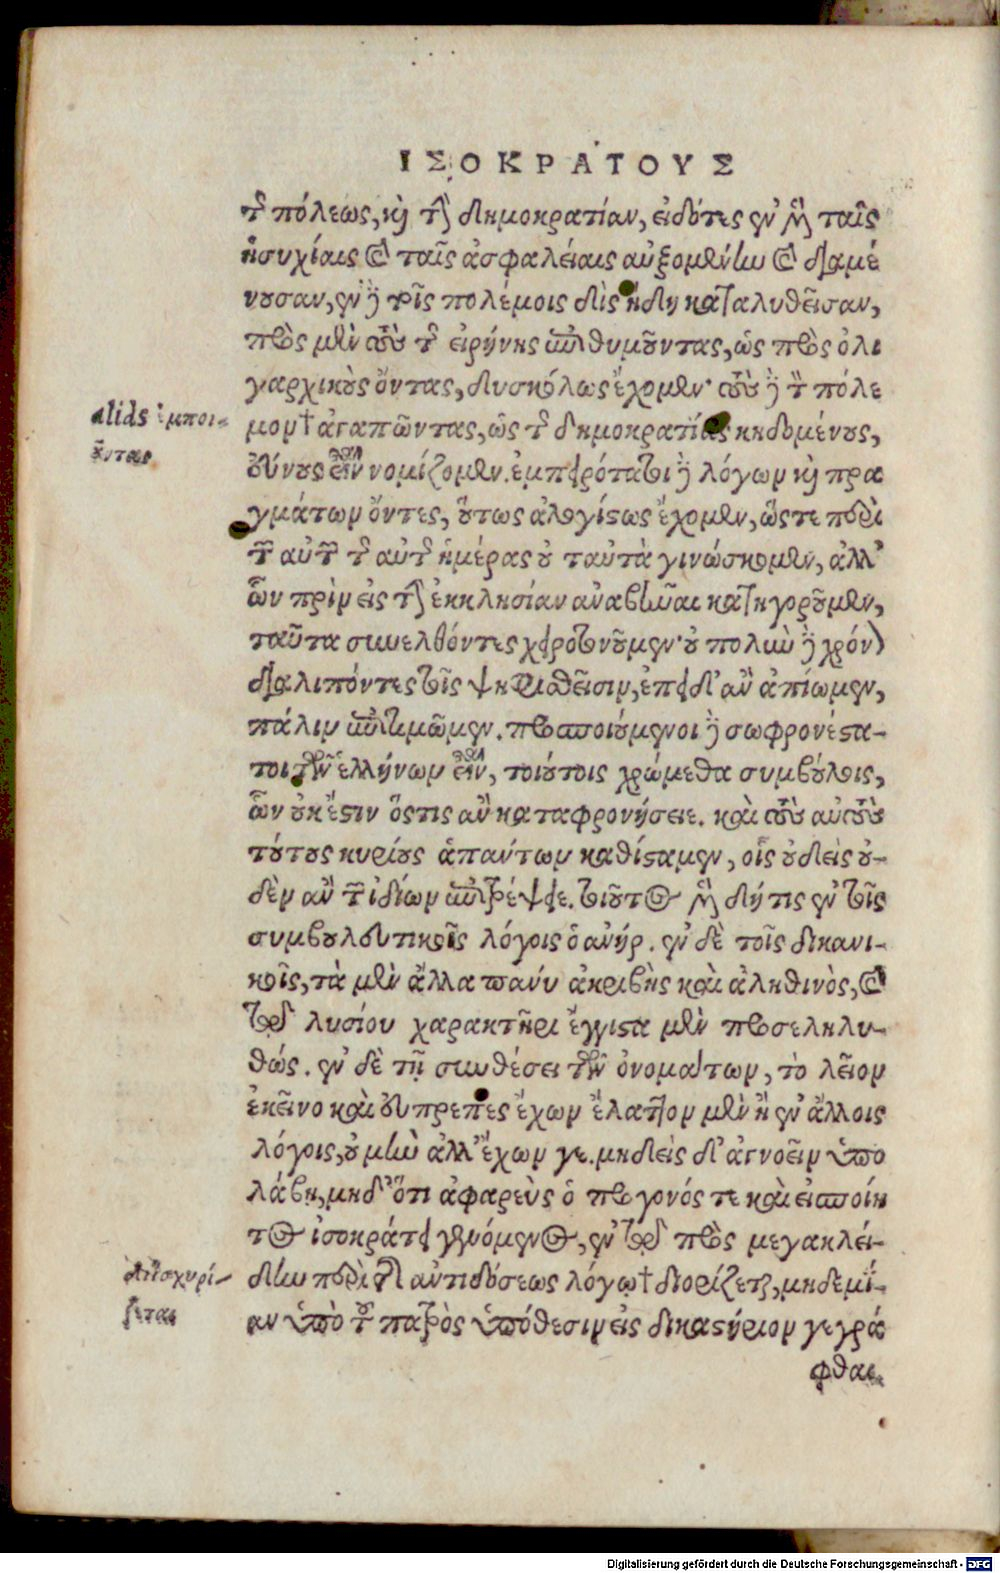 ΙΣΟΚΡΑΤΟΥΣ
τῆς πόλεως, καὶ τὴν δημοκρατίαν, εἰδότες ἐν μὲν ταῖς
ἡσυχίαις καὶ ταῖς ἀσφαλείαις αὐξομένην καὶ διαμέ
νουσαν, ἐν δὲ τοῖς πολέμοις δὶς ἤδη καταλυθεῖσαν,
πρὸς μὲν τοὺς τῆς εἰρήνης ἐπιθυμοῦντας, ὡς πρὸς ὀλι
γαρχικοὺς ὄντας, δυσκόλως ἔχομεν· τοὺς δὲ τὸν πόλε
μον† ἀγαπῶντας, ὡς τῆς δημοκρατίας κηδομένους,
εὔνους εἶναι νομίζομεν. ἐμπειρότατοι δὲ λόγων καὶ πρα
γμάτων ὄντες, οὕτως ἀλογίστως ἔχομεν, ὥστε περὶ
τῶν αὐτῶν τῆς αὐτῆς ἡμέρας οὐ ταὐτὰ γινώσκομεν, ἀλλ'
ὧν πρὶν εἰς τὴν ἐκκλησίαν ἀναβῆναι κατηγοροῦμεν,
ταῦτα συνελθόντες χειροτονοῦμεν· οὐ πολὺν δὲ χρόνον
διαλιπόντες τοῖς ψηφισθεῖσιν, ἐπειδ' ἂν ἀπίωμεν,
πάλιν ἐπιτιμῶμεν. προσποιούμενοι δὲ σωφρονέστα-
τοι τῶν ἑλλήνων εἶναι, τοιούτοις χρώμεθα συμβούλοις,
ὧν οὐκ ἔστιν ὅστις ἂν καταφρονήσειε. καὶ τοὺς αὐτοὺς
τούτους κυρίους ἁπάντων καθίσταμεν, οἷς οὐδεὶς οὐ-
δὲν ἂν τῶν ἰδίων ἐπιτρέψειε. τοιοῦτος μὲν δή τις ἐν τοῖς
συμβουλευτικοῖς λόγοις ὁ ἀνήρ. ἐν δὲ τοῖς δικανι-
κοῖς, τὰ μὲν ἄλλα πάνυ ἀκριβὴς καὶ ἀληθινὸς, καὶ
τῷ λυσίου χαρακτῆρι ἔγγιστα μὲν προσεληλυ-
θώς. ἐν δὲ τῇ συνθέσει τῶν ὀνομάτων, τὸ λεῖον
ἐκεῖνο καὶ εὐπρεπὲς ἔχων ἔλαττον μὲν ἢ ἐν ἄλλοις
λόγοις, οὐ μὴν ἀλλ' ἔχων γε. μηδεὶς δ' ἀγνοεῖν ὑπο
λάβῃ, μηδ' ὅτι ἀφαρεὺς ὁ πρόγονός τε καὶ εἰσποίη
τος ἰσοκράτει γενόμενος, ἐν τῷ πρὸς μεγακλεί-
δην περὶ τῆς ἀντιδόσεως λόγῳ† διορίζεται, μηδεμί-
αν ὑπὸ τοῦ πατρὸς ὑπόθεσιν εἰς δικαστήριον γεγρά
φθαι.
alids ἐμποι-
οῦνται
διισχυρί-
ζεται
Digitalisierung gefördert durch die Deutsche Forschungsgemeinschaft - DFG